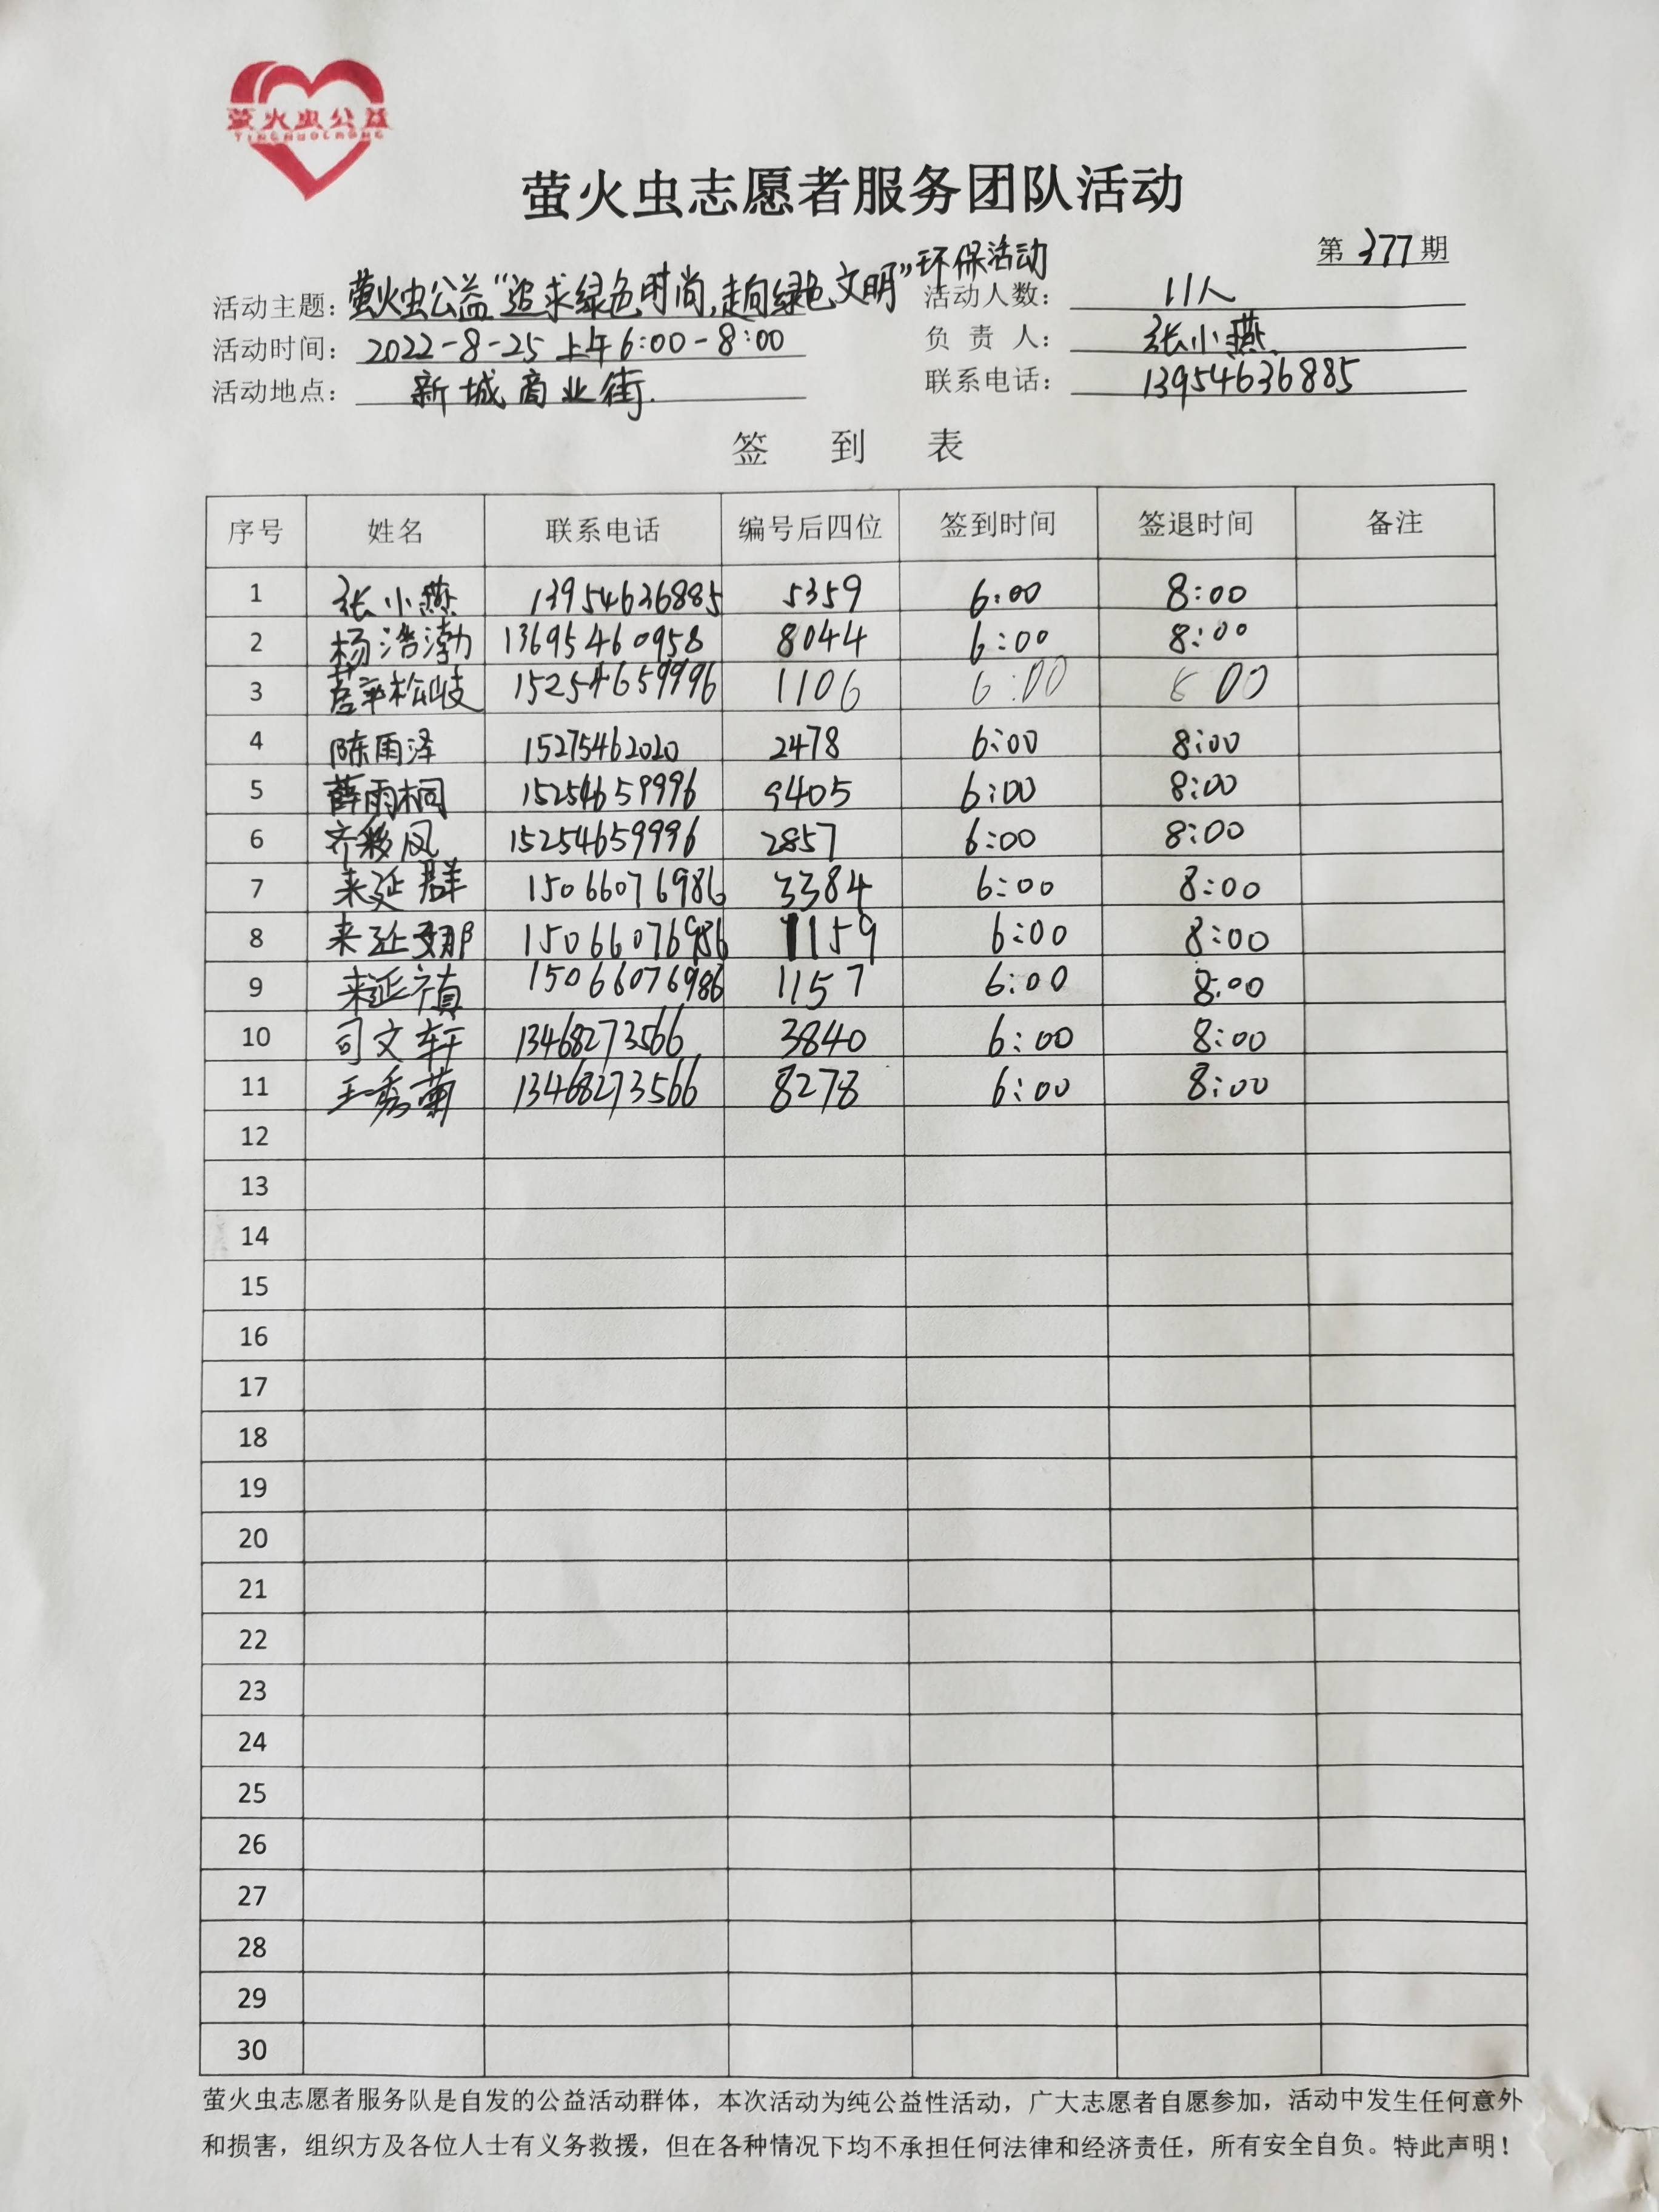 萤火虫公益
YINGHUOCHONG
萤火虫志愿者服务团队活动
第377期
活动主题：萤火虫公益“追求绿色时尚，走向绿色文明”环保活动
活动人数：11人
活动时间：2022-8-25 上午6:00-8:00
负责人：张小燕
活动地点：新城商业街.
联系电话：13954636885
签到表
序号 姓名 联系电话 编号后四位 签到时间 签退时间 备注
1 张小燕 13954636885 5359 6:00 8:00
2 杨浩渤 13695460958 8044 6:00 8:00
3 薛松岐 15254659996 1106 6:00 8 00
4 陈雨泽 15275462020 2478 6:00 8:00
5 薛雨桐 15254659996 9405 6:00 8:00
6 齐彩凤 15254659996 2857 6:00 8:00
7 来延群 15066076986 3384 6:00 8:00
8 来延娜 15066076986 1159 6:00 8:00
9 来延 15066076986 1157 6:00 8:00
10 司文轩 13468273566 3840 6:00 8:00
11 王秀菊 13468273566 8278 6:00 8:00
12
13
14
15
16
17
18
19
20
21
22
23
24
25
26
27
28
29
30
萤火虫志愿者服务队是自发的公益活动群体，本次活动为纯公益性活动，广大志愿者自愿参加，活动中发生任何意外
和损害，组织方及各位人士有义务救援，但在各种情况下均不承担任何法律和经济责任，所有安全自负。特此声明！